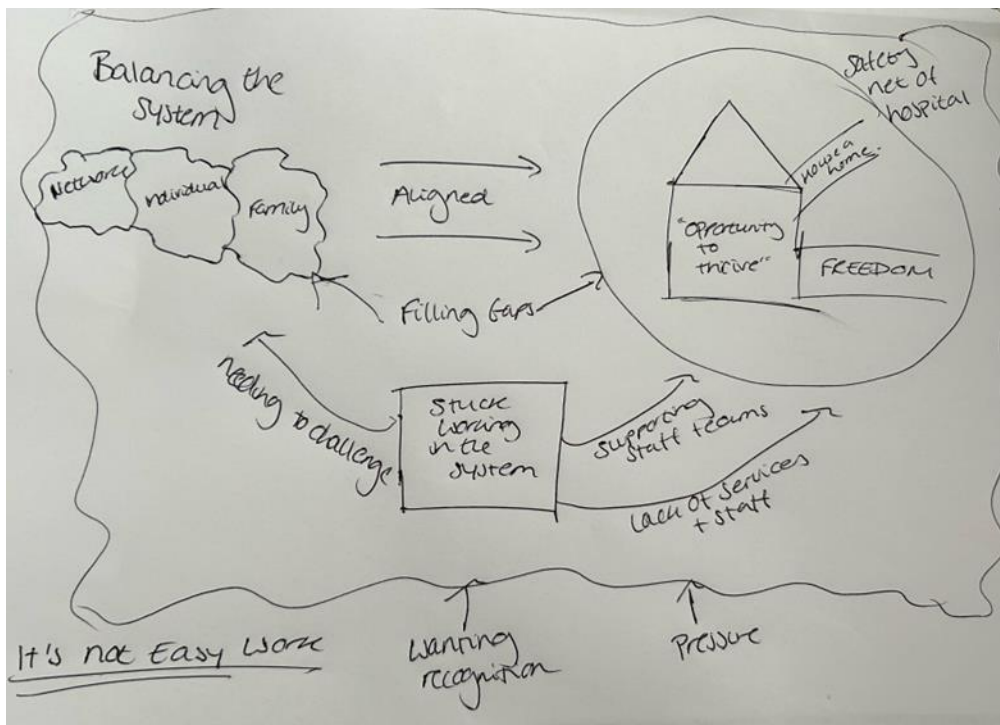 Balancing the
system
Network
individual
Family
Aligned
Filling Gaps
safety
net of
hospital
House a
home.
"Oprortunity
to
thrive"
FREEDOM
needing to challenge
Stuck
working
in the
system
supporting
staff teams
Lack of services
+ staff
It's not Easy work
wanting
recognition
Pressure